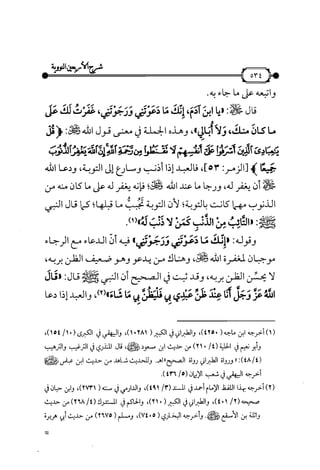 شرح الأربعين النووية
٥٣٤
واتبعه على ما جاء به.
قال ﷺ: «يا ابن آدم، إنك ما دعوتني ورجوتني، غفرت لك على
ما كان منك، ولا أبالي»، وهذه الجملة في معنى قول الله ﷻ: ﴿قُلْ
يَٰعِبَادِيَ ٱلَّذِينَ أَسْرَفُوا۟ عَلَىٰٓ أَنفُسِهِمْ لَا تَقْنَطُوا۟ مِن رَّحْمَةِ ٱللَّهِ إِنَّ ٱللَّهَ يَغْفِرُ ٱلذُّنُوبَ
جَمِيعًا﴾ [الزمر: ٥٣]، فالعبد إذا أذنب وسارع إلى التوبة، ودعا الله
أن يغفر له، ورجا ما عند الله ﷻ؛ فإنه يغفر له على ما كان منه من
الذنوب مهما كانت بالتوبة؛ لأن التوبة تجبُّ ما قبلها؛ كما قال النبي
ﷺ: «التائب من الذنب كمن لا ذنب له»(١).
وقوله: «إنك ما دعوتني ورجوتني» فيه أن الدعاء مع الرجاء
موجبان لمغفرة الله ﷻ، وهناك من يدعو وهو ضعيف الظن بربه،
لا يحسن الظن بربه، وقد ثبت في الصحيح أن النبي ﷺ قال: «قال
الله عز وجل أنا عند ظن عبدي بي فليظن بي ما شاء»(٢)، والعبد إذا دعا
(١) أخرجه ابن ماجه (٤٢٥٠)، والطبراني في الكبير (١٠٢٨١)، والبيهقي في الكبرى (١٠/ ١٥٤)،
وأبو نعيم في الحلية (٤/ ٢١٠) من حديث ابن مسعود، قال المنذري في الترغيب والترهيب
(٤/ ٤٨): «ورواة الطبراني رواة الصحيح» اهـ. وللحديث شاهد من حديث ابن عباس
أخرجه البيهقي في شعب الإيمان (٥/ ٤٣٦).
(٢) أخرجه بهذا اللفظ الإمام أحمد في المسند (٣/ ٤٩١)، والدارمي في سننه (٢٧٣١)، وابن حبان في
صحيحه (٢/ ٤٠١)، والطبراني في الكبير (٢١٠)، والحاكم في المستدرك (٤/ ٢٦٨) من حديث
واثلة بن الأسقع. وأخرجه البخاري (٧٤٠٥)، ومسلم (٢٦٧٥) من حديث أبي هريرة